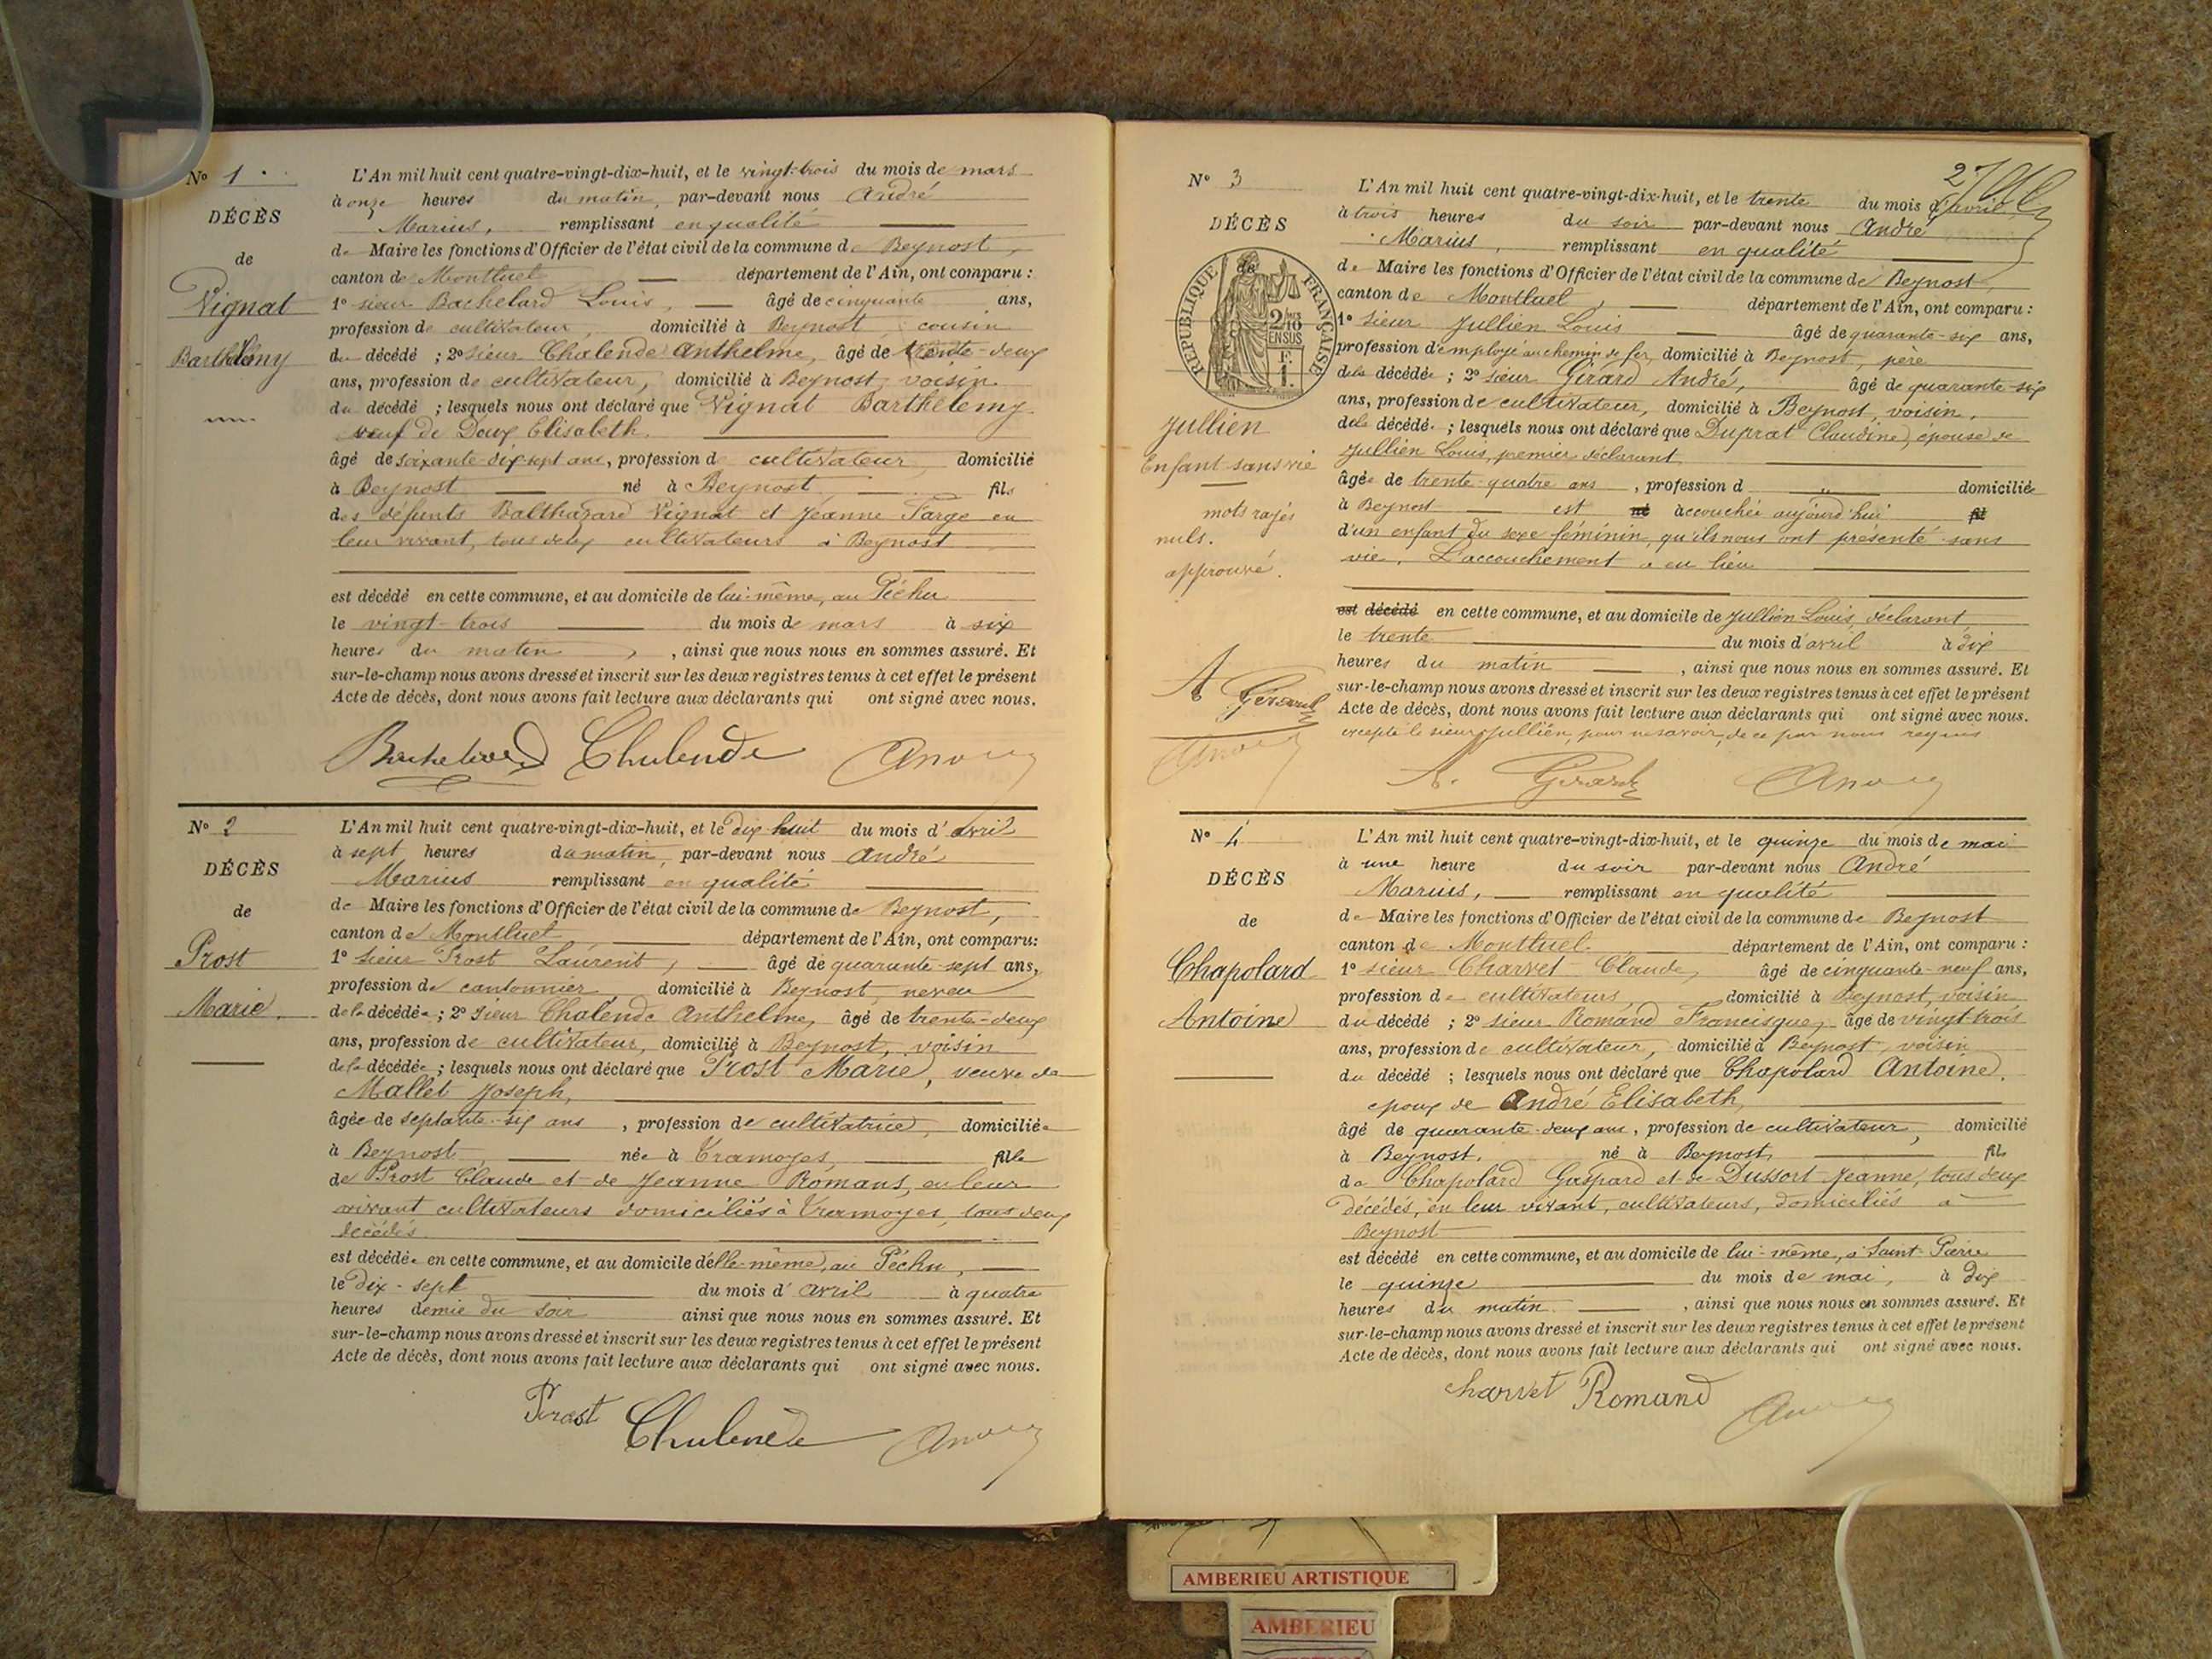 Nº 1
DÉCÈS
de
Vignat
Barthélemy
L'An mil huit cent quatre-vingt-dix-huit, et le vingt-trois du mois de mars
à onze heures du matin, par-devant nous André
Marius, remplissant en qualité
de Maire les fonctions d'Officier de l'état civil de la commune de Beynost,
canton de Montluel département de l'Ain, ont comparu :
1º sieur Bachelard Louis, âgé de cinquante ans,
profession de cultivateur, domicilié à Beynost, cousin
du décédé ; 2º sieur Chalende Anthelme, âgé de trente-deux
ans, profession de cultivateur, domicilié à Beynost, voisin
du décédé ; lesquels nous ont déclaré que Vignat Barthélemy
veuf de Doux Elisabeth,
âgé de soixante-dix-sept ans, profession de cultivateur, domicilié
à Beynost né à Beynost, fils
des défunts Balthazard Vignat et Jeanne Farge en
leur vivant, tous deux cultivateurs à Beynost
est décédé en cette commune, et au domicile de lui-même, au Péchu
le vingt-trois du mois de mars à six
heures du matin, ainsi que nous nous en sommes assuré. Et
sur-le-champ nous avons dressé et inscrit sur les deux registres tenus à cet effet le présent
Acte de décès, dont nous avons fait lecture aux déclarants qui ont signé avec nous.
Bachelard Chalende André
Nº 2
DÉCÈS
de
Prost
Marie.
L'An mil huit cent quatre-vingt-dix-huit, et le dix-huit du mois d'avril
à sept heures du matin, par-devant nous André
Marius remplissant en qualité
de Maire les fonctions d'Officier de l'état civil de la commune de Beynost,
canton de Montluel département de l'Ain, ont comparu:
1º sieur Prost Laurent, âgé de quarante-sept ans,
profession de cantonnier domicilié à Beynost, neveu
de la décédée ; 2º sieur Chalende Anthelme, âgé de trente-deux
ans, profession de cultivateur, domicilié à Beynost, voisin
de la décédée ; lesquels nous ont déclaré que Prost Marie, veuve de
Mallet Joseph,
âgée de septante-six ans, profession de cultivatrice, domiciliée
à Beynost, née à Tramoyes, fille
de Prost Claude et de Jeanne Romans, en leur
vivant cultivateurs domiciliés à Tramoyes, tous deux
décédés.
est décédée en cette commune, et au domicile d'elle-même, au Péchu,
le dix-sept du mois d'avril à quatre
heures demie du soir ainsi que nous nous en sommes assuré. Et
sur-le-champ nous avons dressé et inscrit sur les deux registres tenus à cet effet le présent
Acte de décès, dont nous avons fait lecture aux déclarants qui ont signé avec nous.
Prost Chalende André
2
Nº 3
DÉCÈS
de
RÉPUBLIQUE FRANÇAISE
2/10 EN SUS
F.
1.
Jullien
Enfant sans vie
mots rayés
nuls.
approuvé.
A Girard
André
L'An mil huit cent quatre-vingt-dix-huit, et le trente du mois d'avril
à trois heures du soir par-devant nous André
Marius, remplissant en qualité
de Maire les fonctions d'Officier de l'état civil de la commune de Beynost,
canton de Montluel, département de l'Ain, ont comparu :
1º sieur Jullien Louis âgé de quarante-six ans,
profession d'employé au chemin de fer, domicilié à Beynost, père
de la décédée ; 2º sieur Girard André, âgé de quarante-six
ans, profession de cultivateur, domicilié à Beynost, voisin.
de la décédée ; lesquels nous ont déclaré que Duprat Claudine, épouse de
Jullien Louis, premier déclarant
âgée de trente-quatre ans, profession d " domiciliée
à Beynost est né accouchée aujourd'hui fil
d'un enfant du sexe féminin, qu'ils nous ont présenté sans
vie. L'accouchement a eu lieu
est décédé en cette commune, et au domicile de Jullien Louis, déclarant,
le trente du mois d'avril à dix
heures du matin, ainsi que nous nous en sommes assuré. Et
sur-le-champ nous avons dressé et inscrit sur les deux registres tenus à cet effet le présent
Acte de décès, dont nous avons fait lecture aux déclarants qui ont signé avec nous.
excepté le sieur Jullien, pour ne savoir, de ce par nous requis
A. Girard André
Nº 4
DÉCÈS
de
Chapolard
Antoine
L'An mil huit cent quatre-vingt-dix-huit, et le quinze du mois de mai
à une heure du soir par-devant nous André
Marius, remplissant en qualité
de Maire les fonctions d'Officier de l'état civil de la commune de Beynost
canton de Montluel. département de l'Ain, ont comparu :
1º sieur Charvet Claude, âgé de cinquante-neuf ans,
profession de cultivateurs, domicilié à Beynost, voisin
du décédé ; 2º sieur Romand Francisque, âgé de vingt-trois
ans, profession de cultivateur, domicilié à Beynost, voisin
du décédé ; lesquels nous ont déclaré que Chapolard Antoine,
époux de André Elisabeth,
âgé de quarante-deux ans, profession de cultivateur, domicilié
à Beynost, né à Beynost, fils
de Chapolard Gaspard et de Dussort Jeanne, tous deux
décédés, en leur vivant, cultivateurs, domiciliés à
Beynost
est décédé en cette commune, et au domicile de lui-même, à Saint-Pierre
le quinze du mois de mai, à dix
heures du matin, ainsi que nous nous en sommes assuré. Et
sur-le-champ nous avons dressé et inscrit sur les deux registres tenus à cet effet le présent
Acte de décès, dont nous avons fait lecture aux déclarants qui ont signé avec nous.
Charvet Romand André
AMBERIEU ARTISTIQUE
AMBERIEU